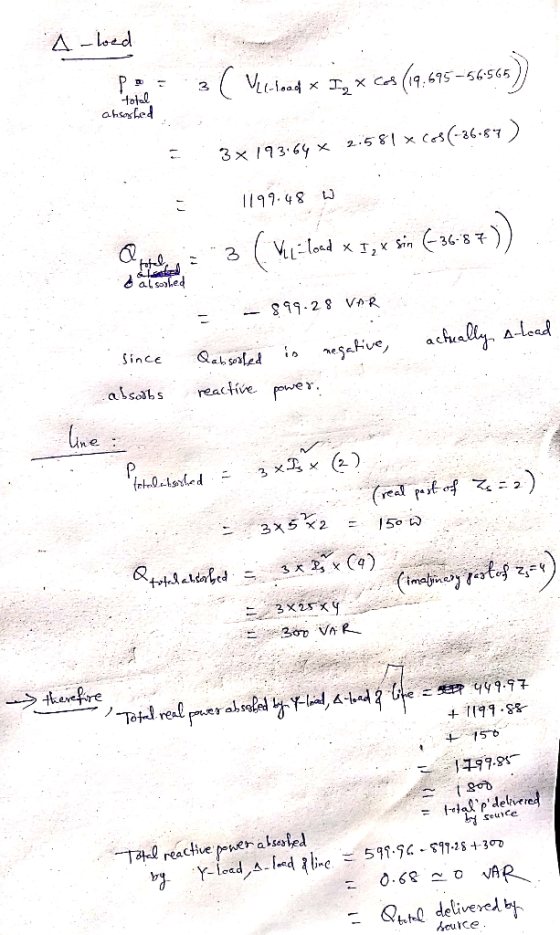 Δ - load
P total absorbed = 3 ( VLL-load × I2 × cos (19.695-56.565))
= 3 × 193.64 × 2.581 × cos(-36.87)
= 1199.48 W
Q total absorbed = 3 ( VLL-load × I2 × sin (-36.87))
= - 899.28 VAR
Since Qabsorbed is negative, actually Δ-load
absorbs reactive power.
line :
Ptotal absorbed = 3 × Is² × (2)
(real part of Zs = 2)
= 3×5²×2 = 150 W
Qtotal absorbed = 3 × Is² × (4) (imaginary part of Zs=4)
= 3×25×4
= 300 VAR
→ therefore, Total real power absorbed by Y-load, Δ-load & line = 449.97
+ 1199.88
+ 150
= 1799.85
≈ 1800
= total 'p' delivered by source
Total reactive power absorbed
by Y-load, Δ-load & line = 599.96 - 899.28 + 300
= 0.68 ≃ 0 VAR
= Qtotal delivered by source.